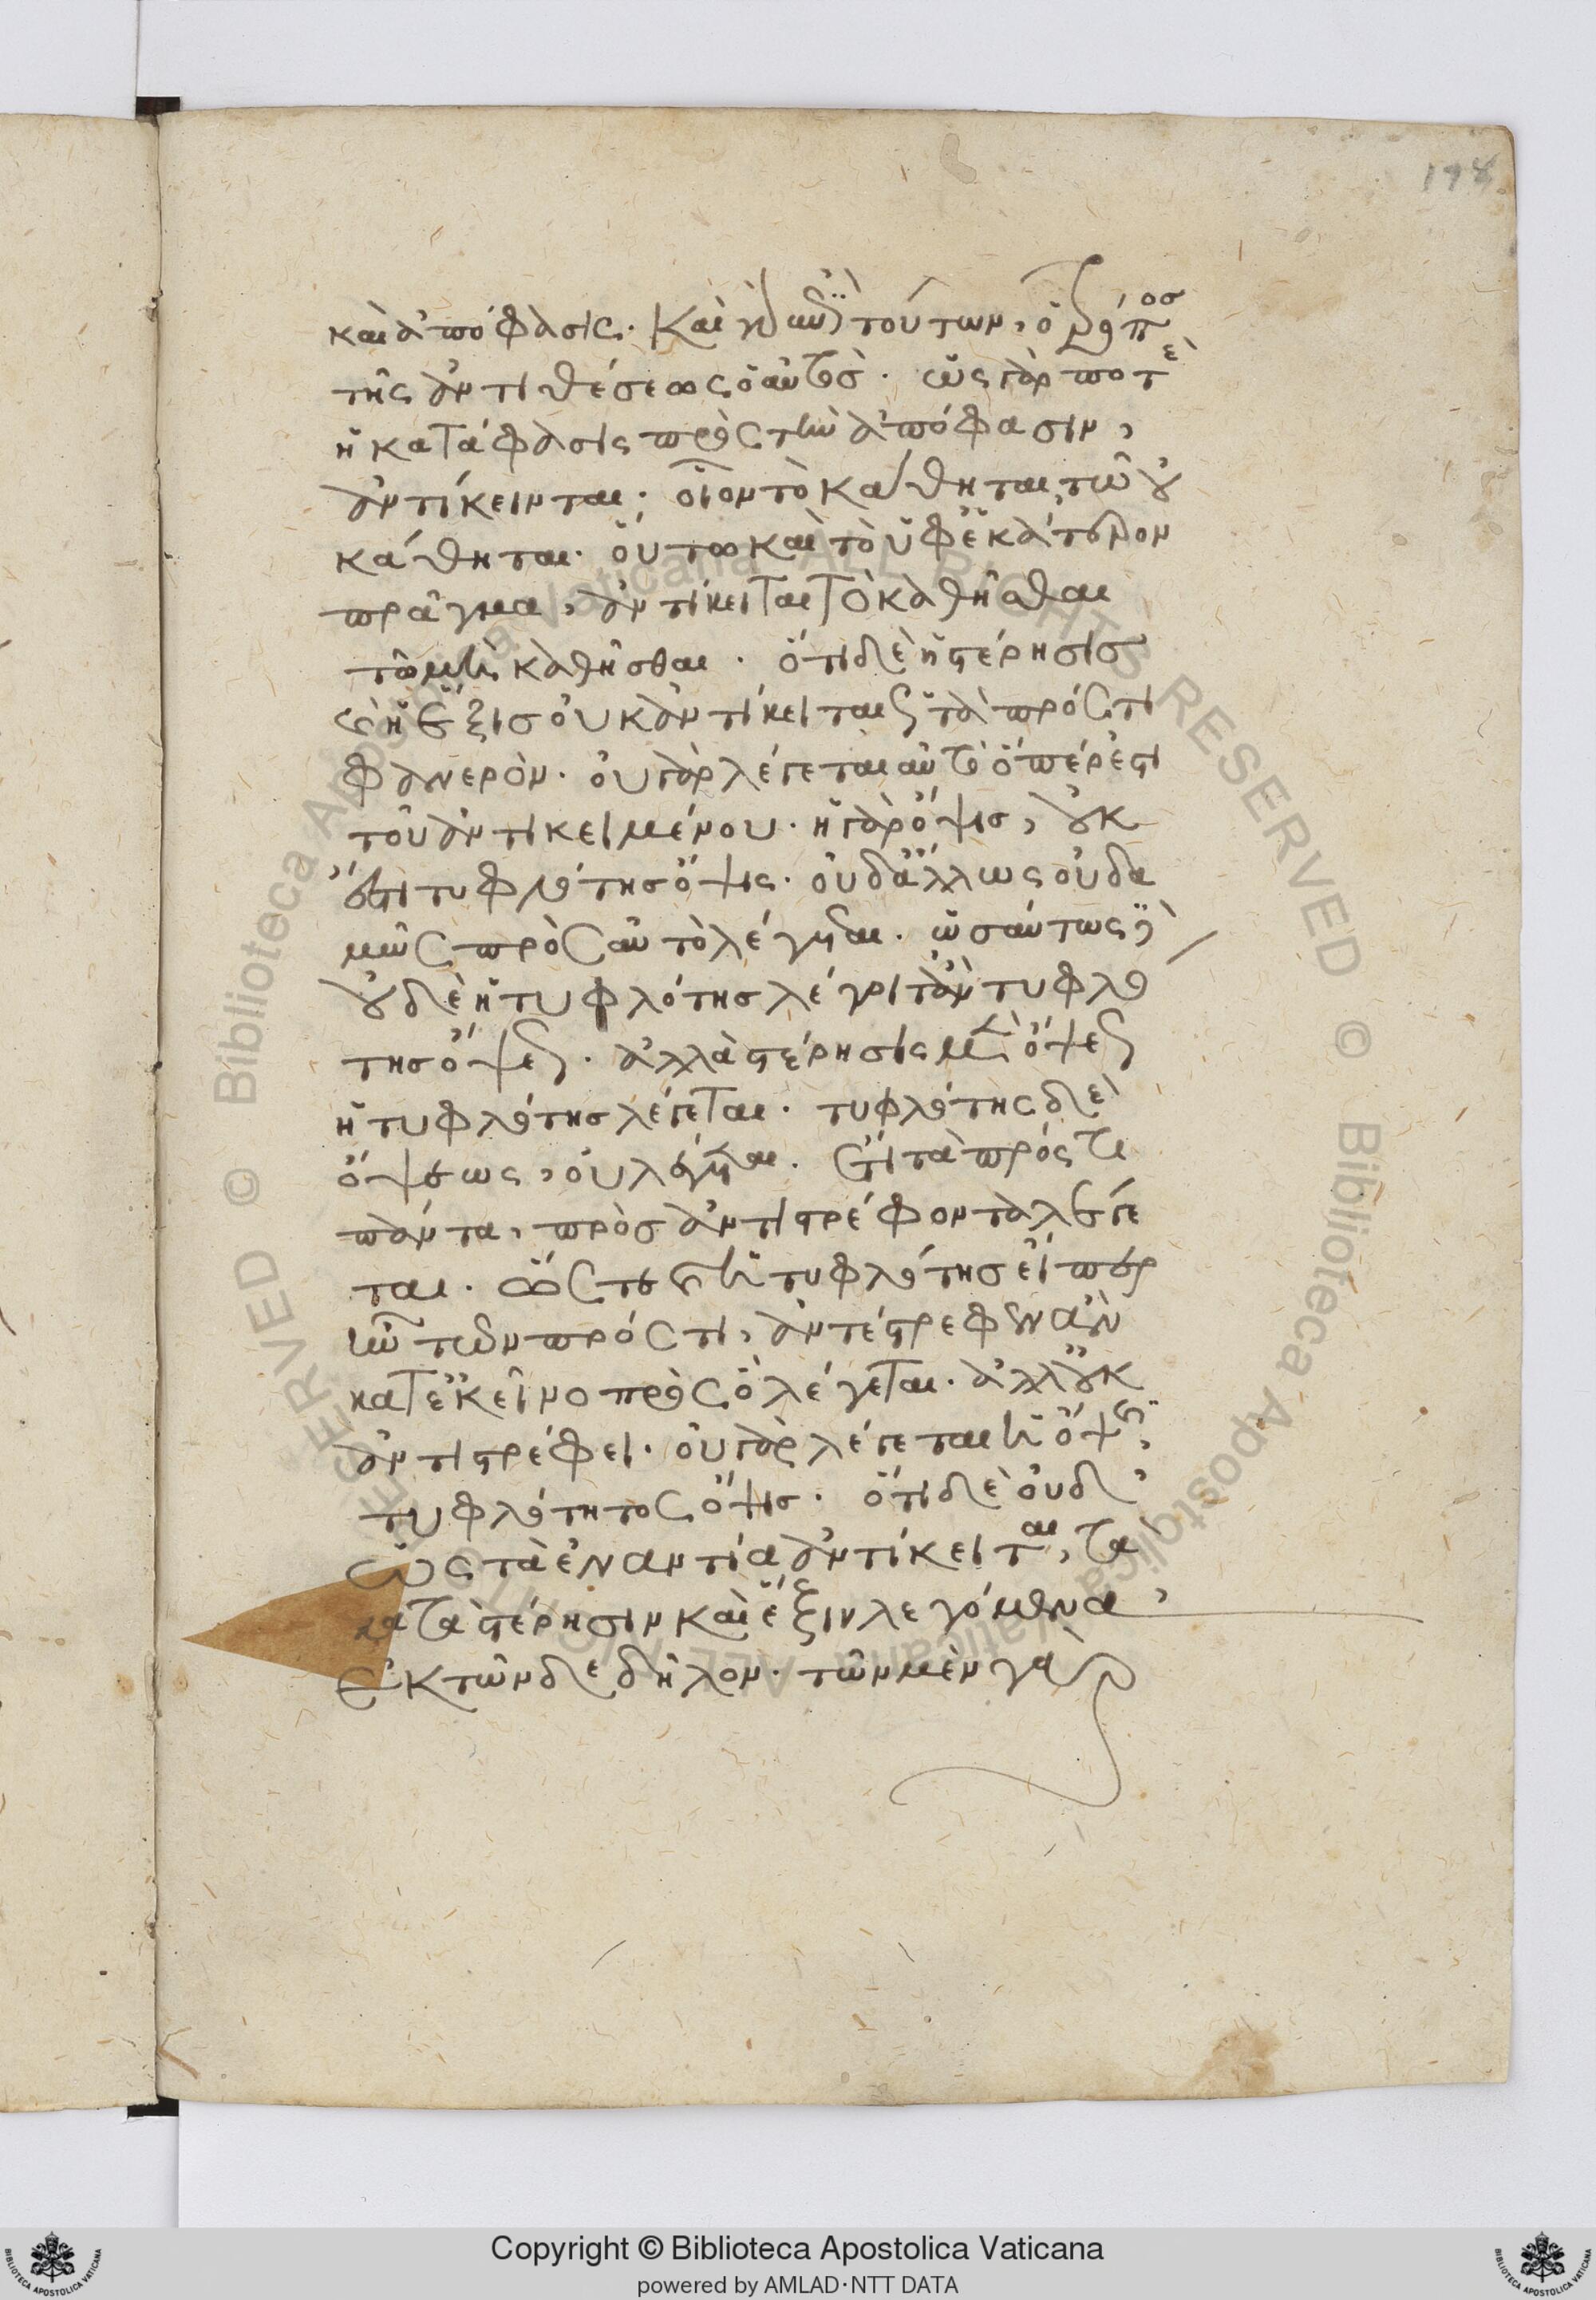 178
καὶ ἀπόφασις. καὶ γὰρ ἐπὶ τούτων, ὁ τρόπος
τῆς ἀντιθέσεως ὁ αὐτός. ὡς γάρ ποτε
ἡ κατάφασις πρὸς τὴν ἀπόφασιν,
ἀντίκεινται. οἷον τὸ κάθηται, τῶ οὐ
κάθηται. οὕτω καὶ τὸ ὑφ ἑκάτερον
πρᾶγμα, ἀντίκειται τὸ καθῆσθαι
τῶ μὴ καθῆσθαι. ὅτι δὲ ἡ στέρησις
καὶ ἡ ἕξις οὐκ ἀντίκειται ὡς τὰ πρός τι
φανερόν. οὐ γὰρ λέγεται αὐτὸ ὅπέρ ἐστι
τοῦ ἀντικειμένου. ἡ γὰρ ὄψις, οὐκ
ἔστι τυφλότης ὄψις. οὐδ ἄλλως οὐδα
μῶς πρὸς αὐτὸ λέγεται. ὡσαύτως δὲ
οὐδὲ ἡ τυφλότης λέγοιτ ἂν τυφλό
της ὄψεως. ἀλλὰ στέρησις μὲν ὄψεως
ἡ τυφλότης λέγεται. τυφλότης δὲ
ὄψεως, οὐ λέγεται. ἔτι τὰ πρός τι
πάντα, πρὸς ἀντιστρέφοντα λέγε
ται. ὥστε καὶ ἡ τυφλότης εἴπερ
ἦν τῶν πρός τι, ἀντέστρεφεν ἂν
κατ ἐκεῖνο πρὸς ὃ λέγεται. ἀλλ οὐκ
ἀντιστρέφει. οὐ γὰρ λέγεται ἡ ὄψις,
τυφλότητος ὄψις. ὅτι δὲ οὐδ
ὡς τὰ ἐναντία ἀντίκειται, τὰ
κατὰ στέρησιν καὶ ἕξιν λεγόμενα,
ἐκ τῶνδε δῆλον. τῶν μὲν γὰρ
Copyright © Biblioteca Apostolica Vaticana
powered by AMLAD·NTT DATA